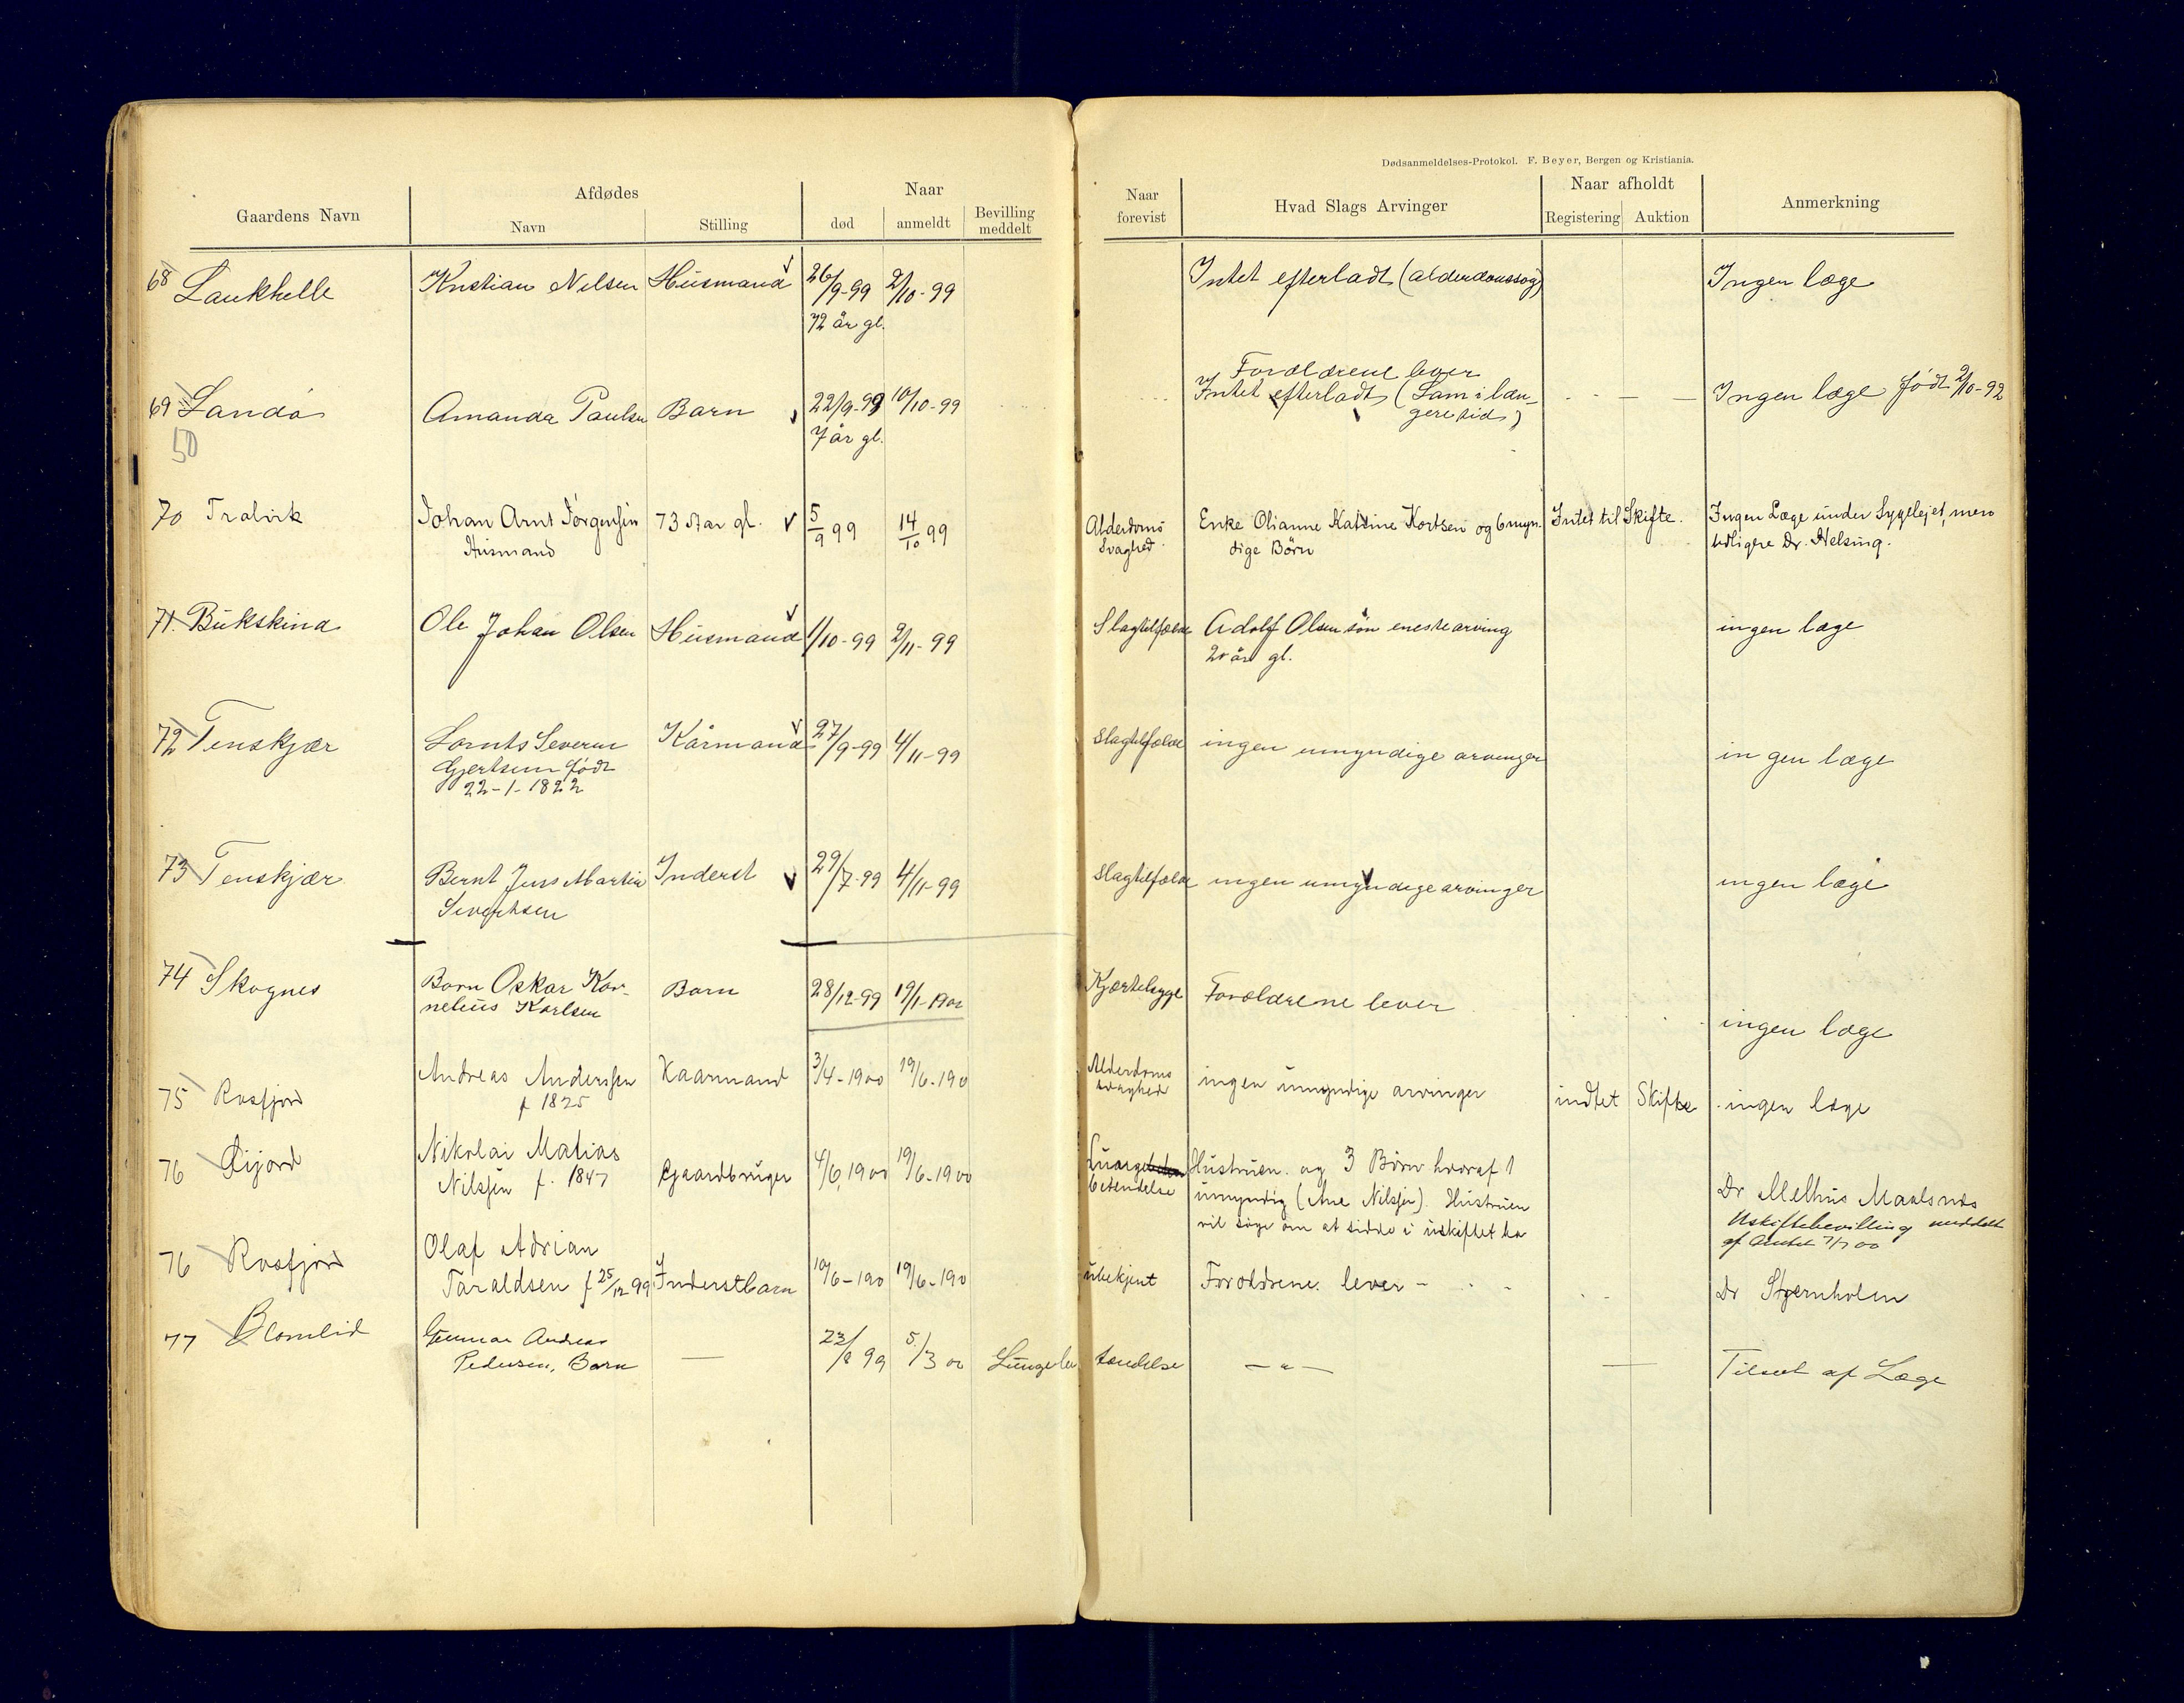 Dødsanmeldelses-Protokol. F. Beyer, Bergen og Kristiania.
Gaardens Navn
Afdødes
Navn
Stilling
Naar
død
anmeldt
Bevilling
meddelt
Naar
forevist
Hvad Slags Arvinger
Naar afholdt
Registering
Auktion
Anmerkning
68 Laukhelle
Kristian Nilsen
Husmand
26/9-99
72 år gl.
2/10-99
Intet efterladt
Ingen læge
69 Landø
50
Amanda Paulsen
Barn
22/9-99
7 år gl.
10/10-99
Forældrene lever
Intet efterladt (Lam i læn-
gere tid)
Ingen læge født 2/10-92
70 Tralvik
Johan Arnt Jørgensen
Husmand
73 Aar gl.
5/9 99
14/10 99
Alderdoms
Svaghed
Enke Olianne Katrine Kortsen og 6 myn-
dige Børn
Intet til Skifte.
Ingen Læge under Sygelejet, men
tidligere Dr. Helsing.
71. Bukskind
Ole Johan Olsen
Husmand
1/10-99
2/11-99
Slagtilfælde
Adolf Olsen søn enestearving
20 år gl.
ingen læge
72 Tenskjær
Lornts Severin
Gjertsen født
22-1-1822
Kårmand
27/9-99
4/11-99
slagtilfælde
ingen umyndige arvinger
ingen læge
73 Tenskjær
Bernt Jens Martin
Sivertsen
Inderst
29/7-99
4/11-99
slagtilfælde
ingen umyndige arvinger
ingen læge
74 Skognes
Barn Oskar Kor-
nelius Karlsen
Barn
28/12-99
19/1-1900
Kjertelsyge
Forældrene lever
ingen læge
75 Rosfjord
Andreas Anderssen
f 1825
Kaarmand
3/4-1900
19/6-190
Alderdoms
svaghed
ingen umyndige arvinger
indtet Skifte
ingen læge
76 Øijord
Nikolai Matias
Nilssen f. 1847
Gaardbruger
4/6, 1900
19/6-1900
Lunge
betendelse
Hustruen og 3 Børn hvoraf 1
umyndig (Ane Nilssen). Hustruen
vil søge om at sidde i uskiftet bo
Dr Melhus Maalsnes
Uskiftebevilling meddelt
af Amtet 7/7 00
76 Rosfjord
Olaf Adrian
Taraldsen f 25/12 99
Inderstbarn
10/6-190
19/6-190
ubekjent
Forældrene lever -
Dr Stjernholm
77 Blomlid
Gunnar Andreas
Pedersen, Barn
—
23/8 99
5/3 00
Lungebetændelse
— " —
—
Tilset af Læge